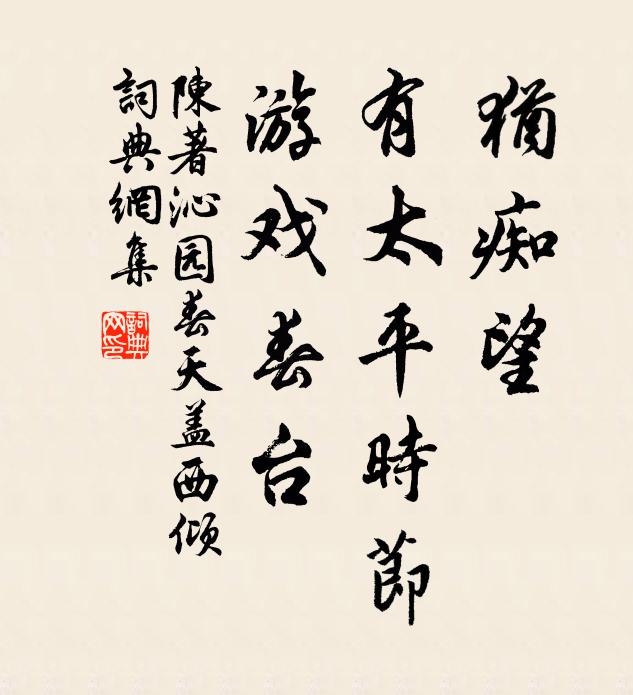 猶痴望
有太平時節
游戏春台
陳著沁园春天盖西倾
詞典網集
詞典網印